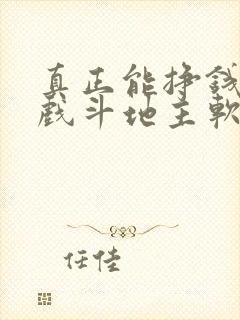 真正能挣钱
戏斗地主软
任佳